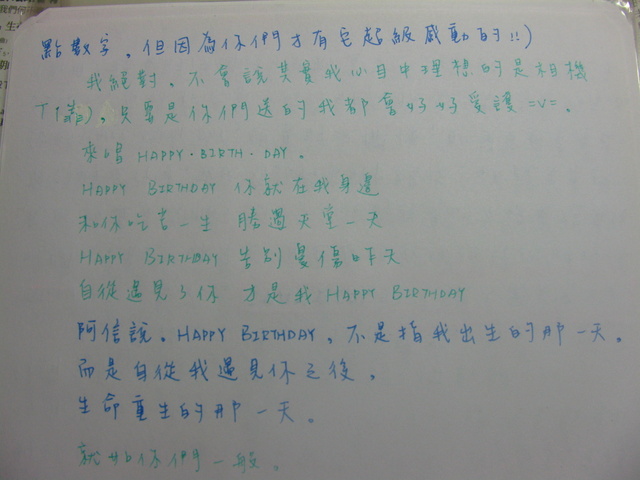 點數字，但因為你們才有它超級感動的!!)
我絕對，不會說其實我心目中理想的是相機
T(誤)，只要是你們送的我都會好好愛護=v=。
來唱 HAPPY·BIRTH·DAY。
HAPPY BIRTHDAY 你就在我身邊
和你吃苦一生 勝過天堂一天
HAPPY BIRTHDAY 告別憂傷昨天
自從遇見了你 才是我 HAPPY BIRTHDAY
阿信說。HAPPY BIRTHDAY，不是指我出生的那一天。
而是自從我遇見你之後，
生命重生的那一天。
就如你們一般。